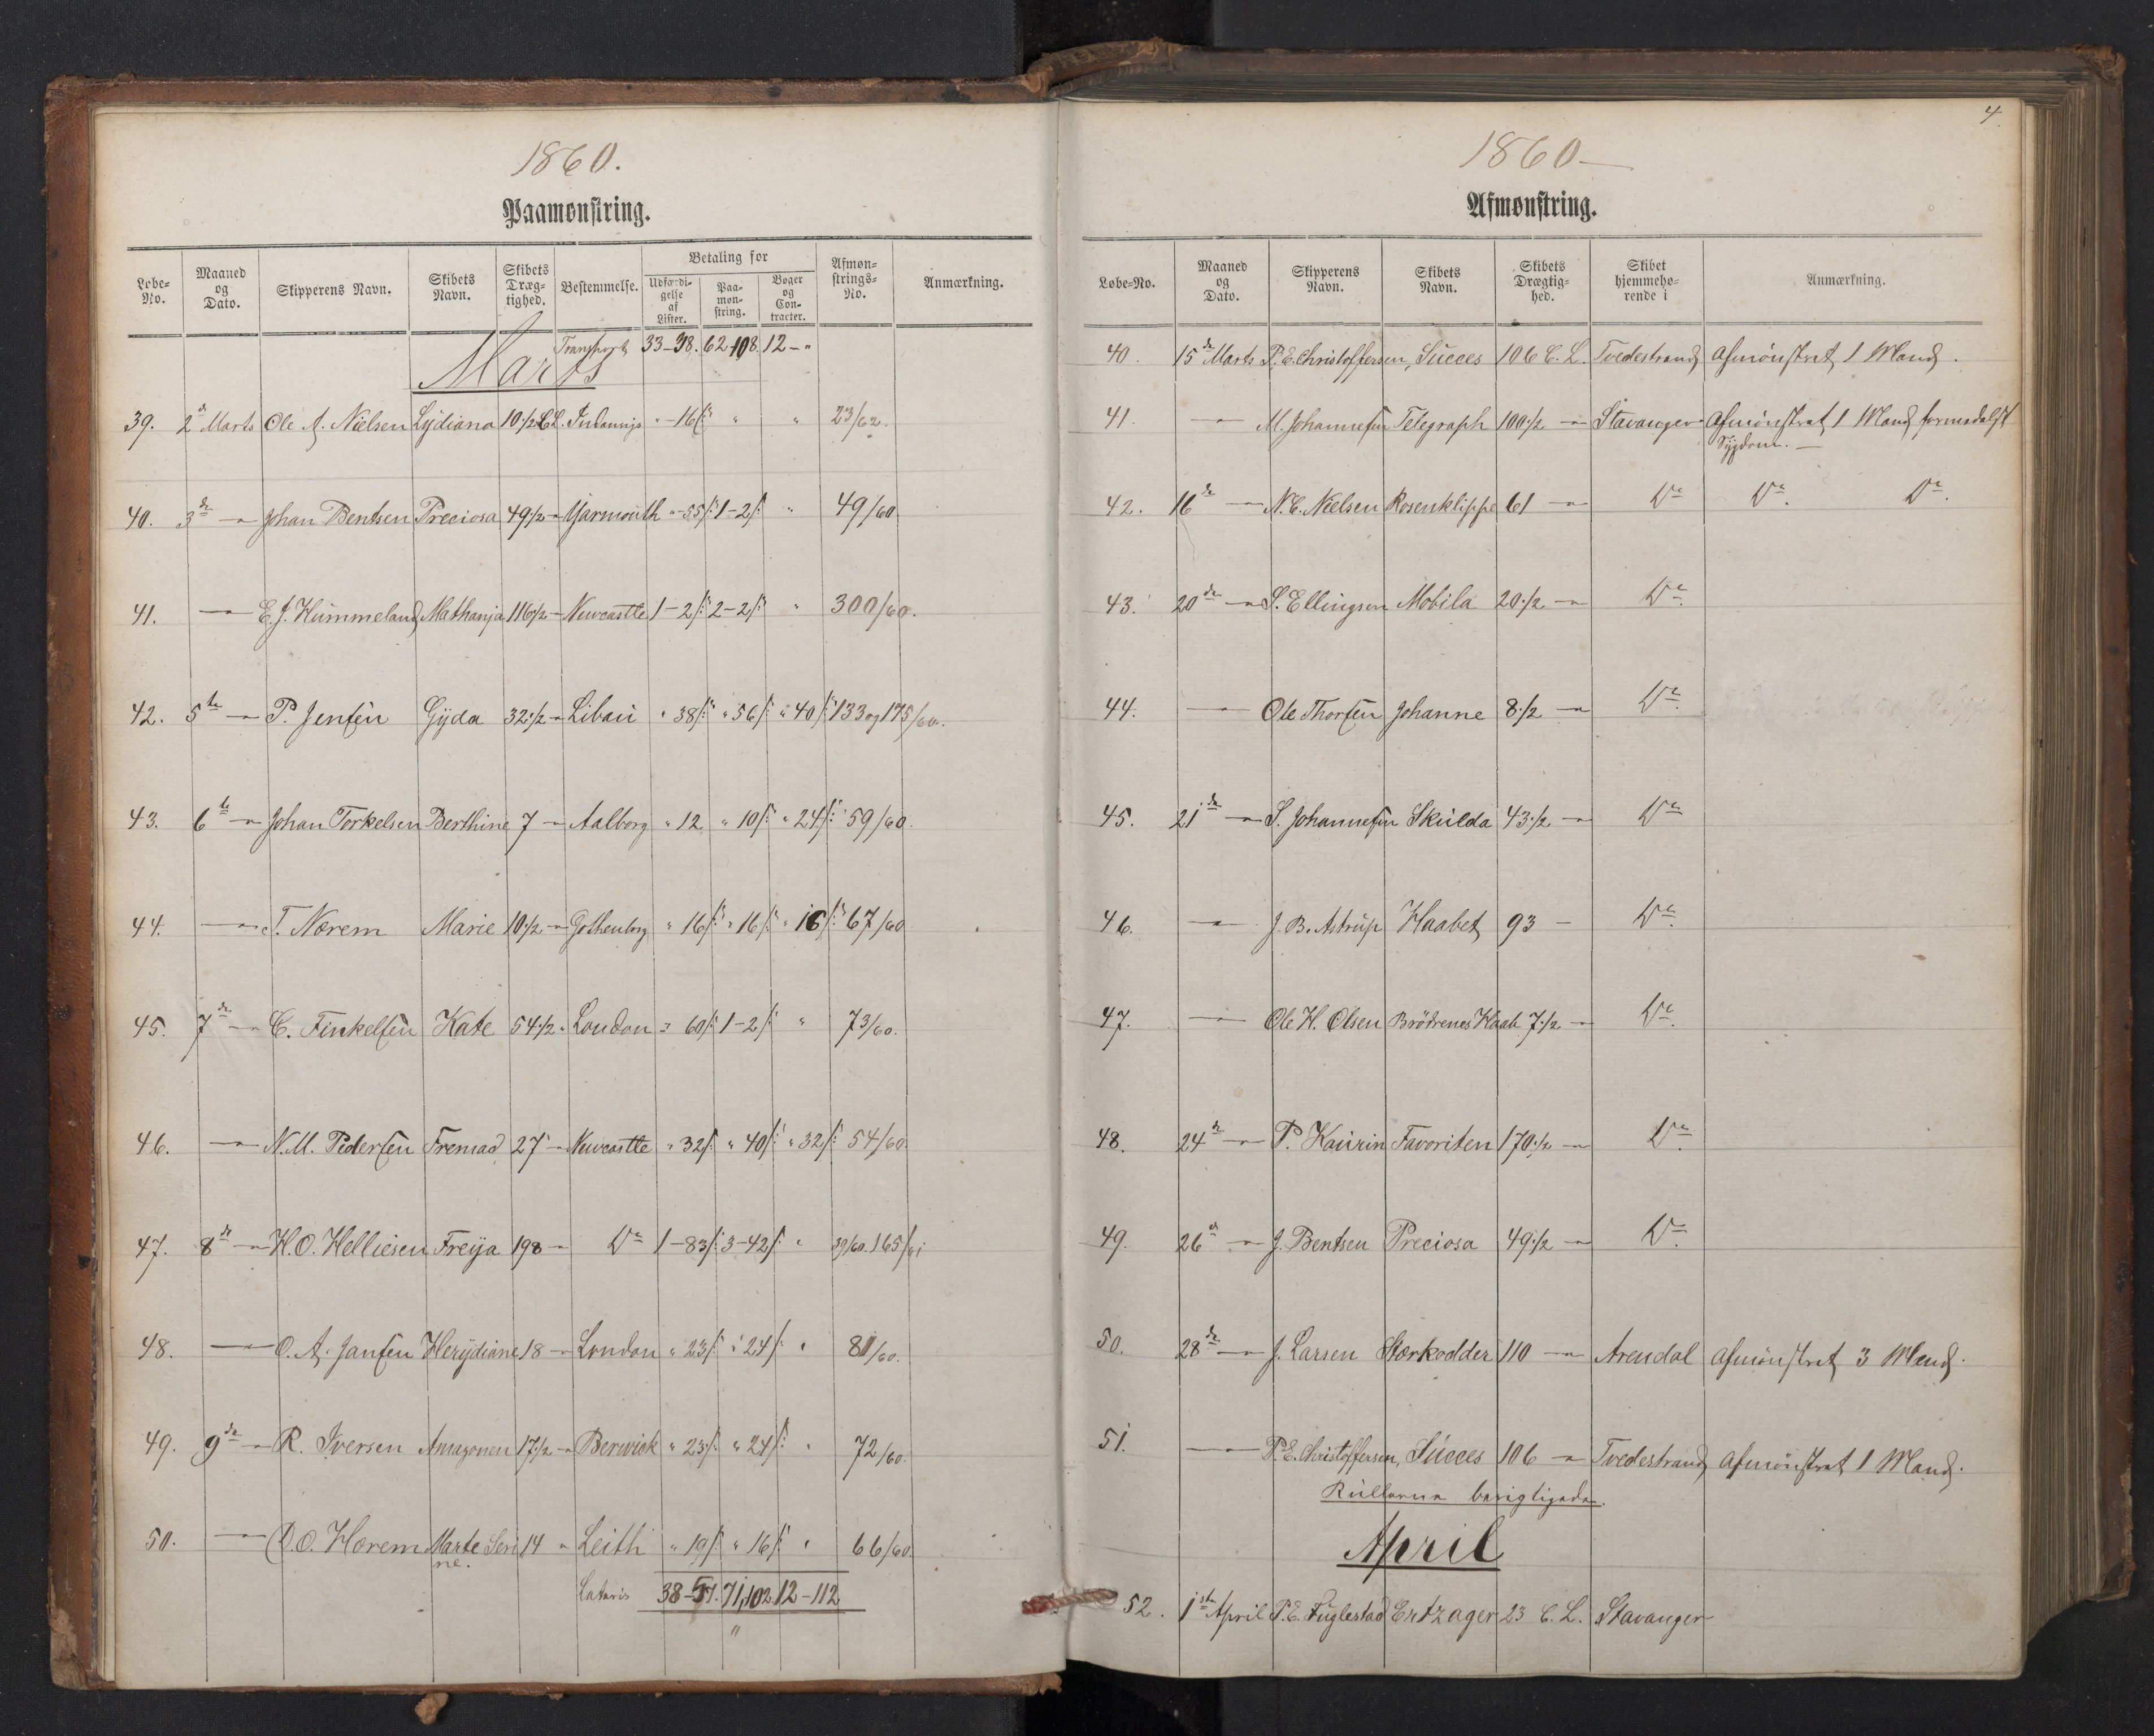 1860.
Paamønstring.
Løbe-No. Maaned og Dato. Skipperens Navn. Skibets Navn. Skibets Dræg-tighed. Bestemmelse. Betaling for Udfærdi-gelse af Lister. Paa-mon-string. Bøger og Con-tracter. Afmøn-strings-No. Anmærkning.
Transport 33-38. 62-108. 12-"
Marts
39. 2d Marts Ole A. Nielsen Lydiana 10 1/2 C.L. " -16ß " " 23/62.
40. 3de -"- Johan Bentsen Preciosa 49 1/2 - Yarmouth "-55ß 1-2ß " 49/60
41. -"- E. J. Hummeland Mathanja 116 1/2 - Newcastle 1-2ß 2-2ß " 300/60.
42. 5te -"- P. Jensen Gyda 32 1/2 - Libau " 38ß " 56ß " 40ß 133 og 175/60.
43. 6te -"- Johan Torkelsen Berthine 7 - Aalborg " 12 " 10ß " 24ß 59/60.
44. -"- T. Nærem Marie 10 1/2 - Gothenborg " 16ß " 16ß " 16ß 67/60
45. 7de -"- C. Finkelsen Kate 54 1/2 " London " 60ß 1-2ß " 73/60.
46. -"- N. M. Pedersen Fremad 27 - Newcastle " 32ß " 40ß " 32ß 54/60
47. 8de -"- H. O. Helliesen Freija 198 - Do 1-83ß 3-42ß " 39/60. 165/61
48. -"- O. A. Jansen Herydiane 18 - London " 23ß " 24ß " 81/60.
49. 9de -"- R. Iversen Amazonen 17 1/2 - Berwick " 23ß " 24ß " 72/60.
50. -"- D. O. Horem Marte Seri 14 " Leith " 19ß " 16ß " 66/60.
ne.
Lateris 38-57. 71,102 12-112
"
4
1860-
Afmønstring.
Løbe-No. Maaned og Dato. Skipperens Navn. Skibets Navn. Skibets Drægtig-hed. Skibet hjemmehø-rende i Anmærkning.
40. 15de Marts P. E. Christoffersen, Succes 106 C. L. Tvedestrand Afmønstret 1 Mand.
41. -"- M. Johannesen Telegraph 100 1/2 -"- Stavanger Afmønstret 1 Mand formedelst
Sygdom. -
42. 16de -"- N. C. Nielsen Rosenklippe 61 -"- Do Do. Do.
43. 20de -"- S. Ellingsen Mobila 20 1/2 -"- Do.
44. -"- Ole Thorsen Johanne 8 1/2 -"- Do.
45. 21de -"- S. Johannesen Skulda 43 1/2 -"- Do
46. -"- J. B. Astrup Haabet 93 - Do.
47. -"- Ole H. Olsen Brödrenes Haab 7 1/2 -"- Do.
48. 24de -"- P. Kaurin Favoriten 170 1/2 -"- Do.
49. 26de -"- J. Bentsen Preciosa 49 1/2 -"- Do.
50. 28de -"- J. Larsen Stærkodder 110 -"- Arendal Afmönstret 3 Mand.
51. -"- P. E. Christoffersen, Succes 106 -"- Tvedestrand Afmönstret 1 Mand.
Rullerne berigtigede.
April
52. 1ste April P. E. Fuglestad Ertzager 23 C. L. Stavanger